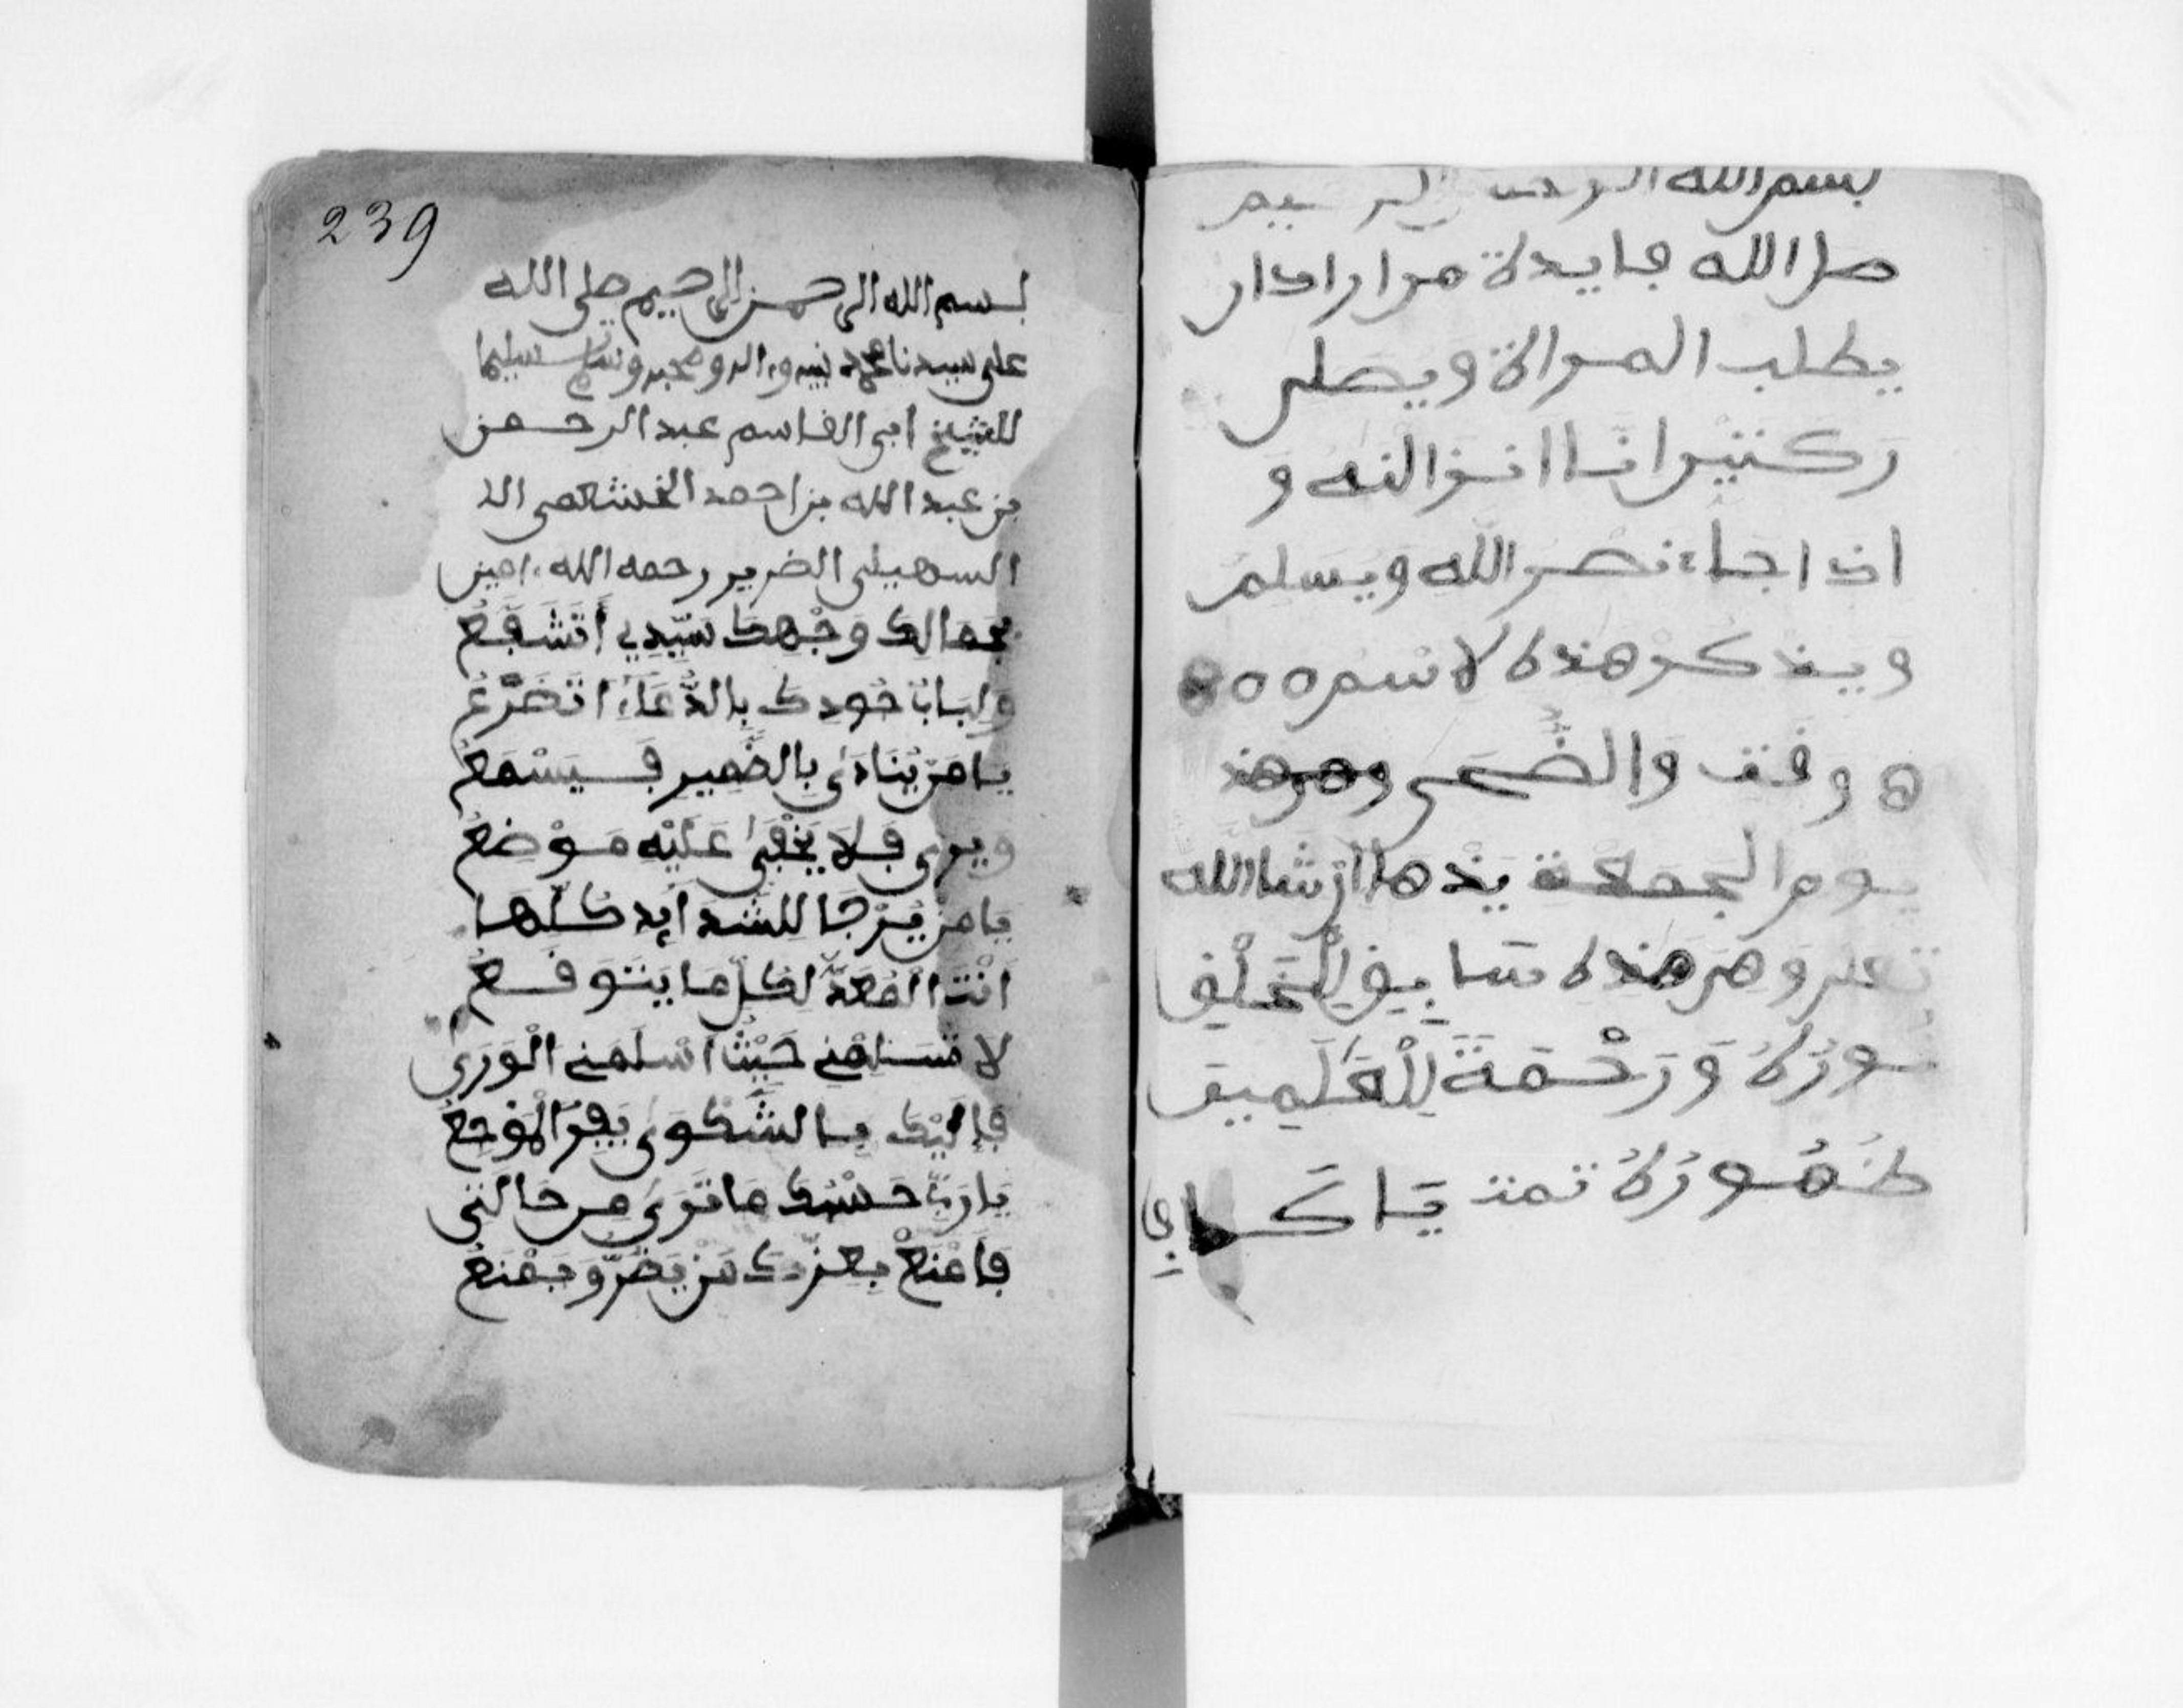 بسم الله الرحمن الرحيم
صل الله فايدة من اراد ار
يطلب المراة ويصلى
ركتين انا انزالنه و
اذا جاء نصر الله ويسلم
ويذكر هذه لاسم
وقت والضحى
يوم الجمعة ان شا الله
وهم هذه
سورة وَرَحْمَةً لِلْعَلَمِين
طهورة تمت يا
239
بسم الله الرحمن الرحيم صلى الله
على سيدنا محمد نبيه واله وصحبه وسلم تسليما
للشيخ ابى القاسم عبد الرحمن
بن عبد الله بن احمد الخشعمى الا
السهيلى الضرير رحمه الله ءامين
بجمالك وَجْهك سَيّدِي أتَشَفَّعُ
ولباب جُودك بالدُّعَاءِ اتَضَرَّعُ
يامن يُنَادَى بِالضَّمِير فَيَسْمَعُ
ويرى فَلاَ يَخْفَى عَلَيْهِ مَوْضِعُ
يامن يُرْجَا لِلشدَايدِ كُلّهَا
اَنْتَ الْمُعَدّ لكلّ ما يتوقع
لا تسلمني حَيْثُ اَسْلَمَني الْوَرَى
فَإلَيْك يا الشَّكوى يَفِرّ الْمُوجَعُ
يارَبّ حسبك ما تَرَى من حالتي
فَامْنَعْ بِعِزّك مَن يَضُرّ وَيَمْنَعُ